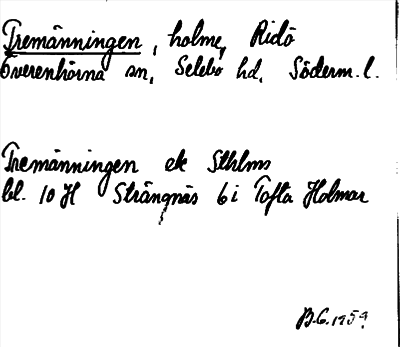 Tremänningen, holme, Ridö
Överenhörna sn, Selebo hd, Söderm. l.
Tremänningen ek Sthlms
bl. 10 H Strängnäs 6 i Tofta Holmar
B.G. 1959